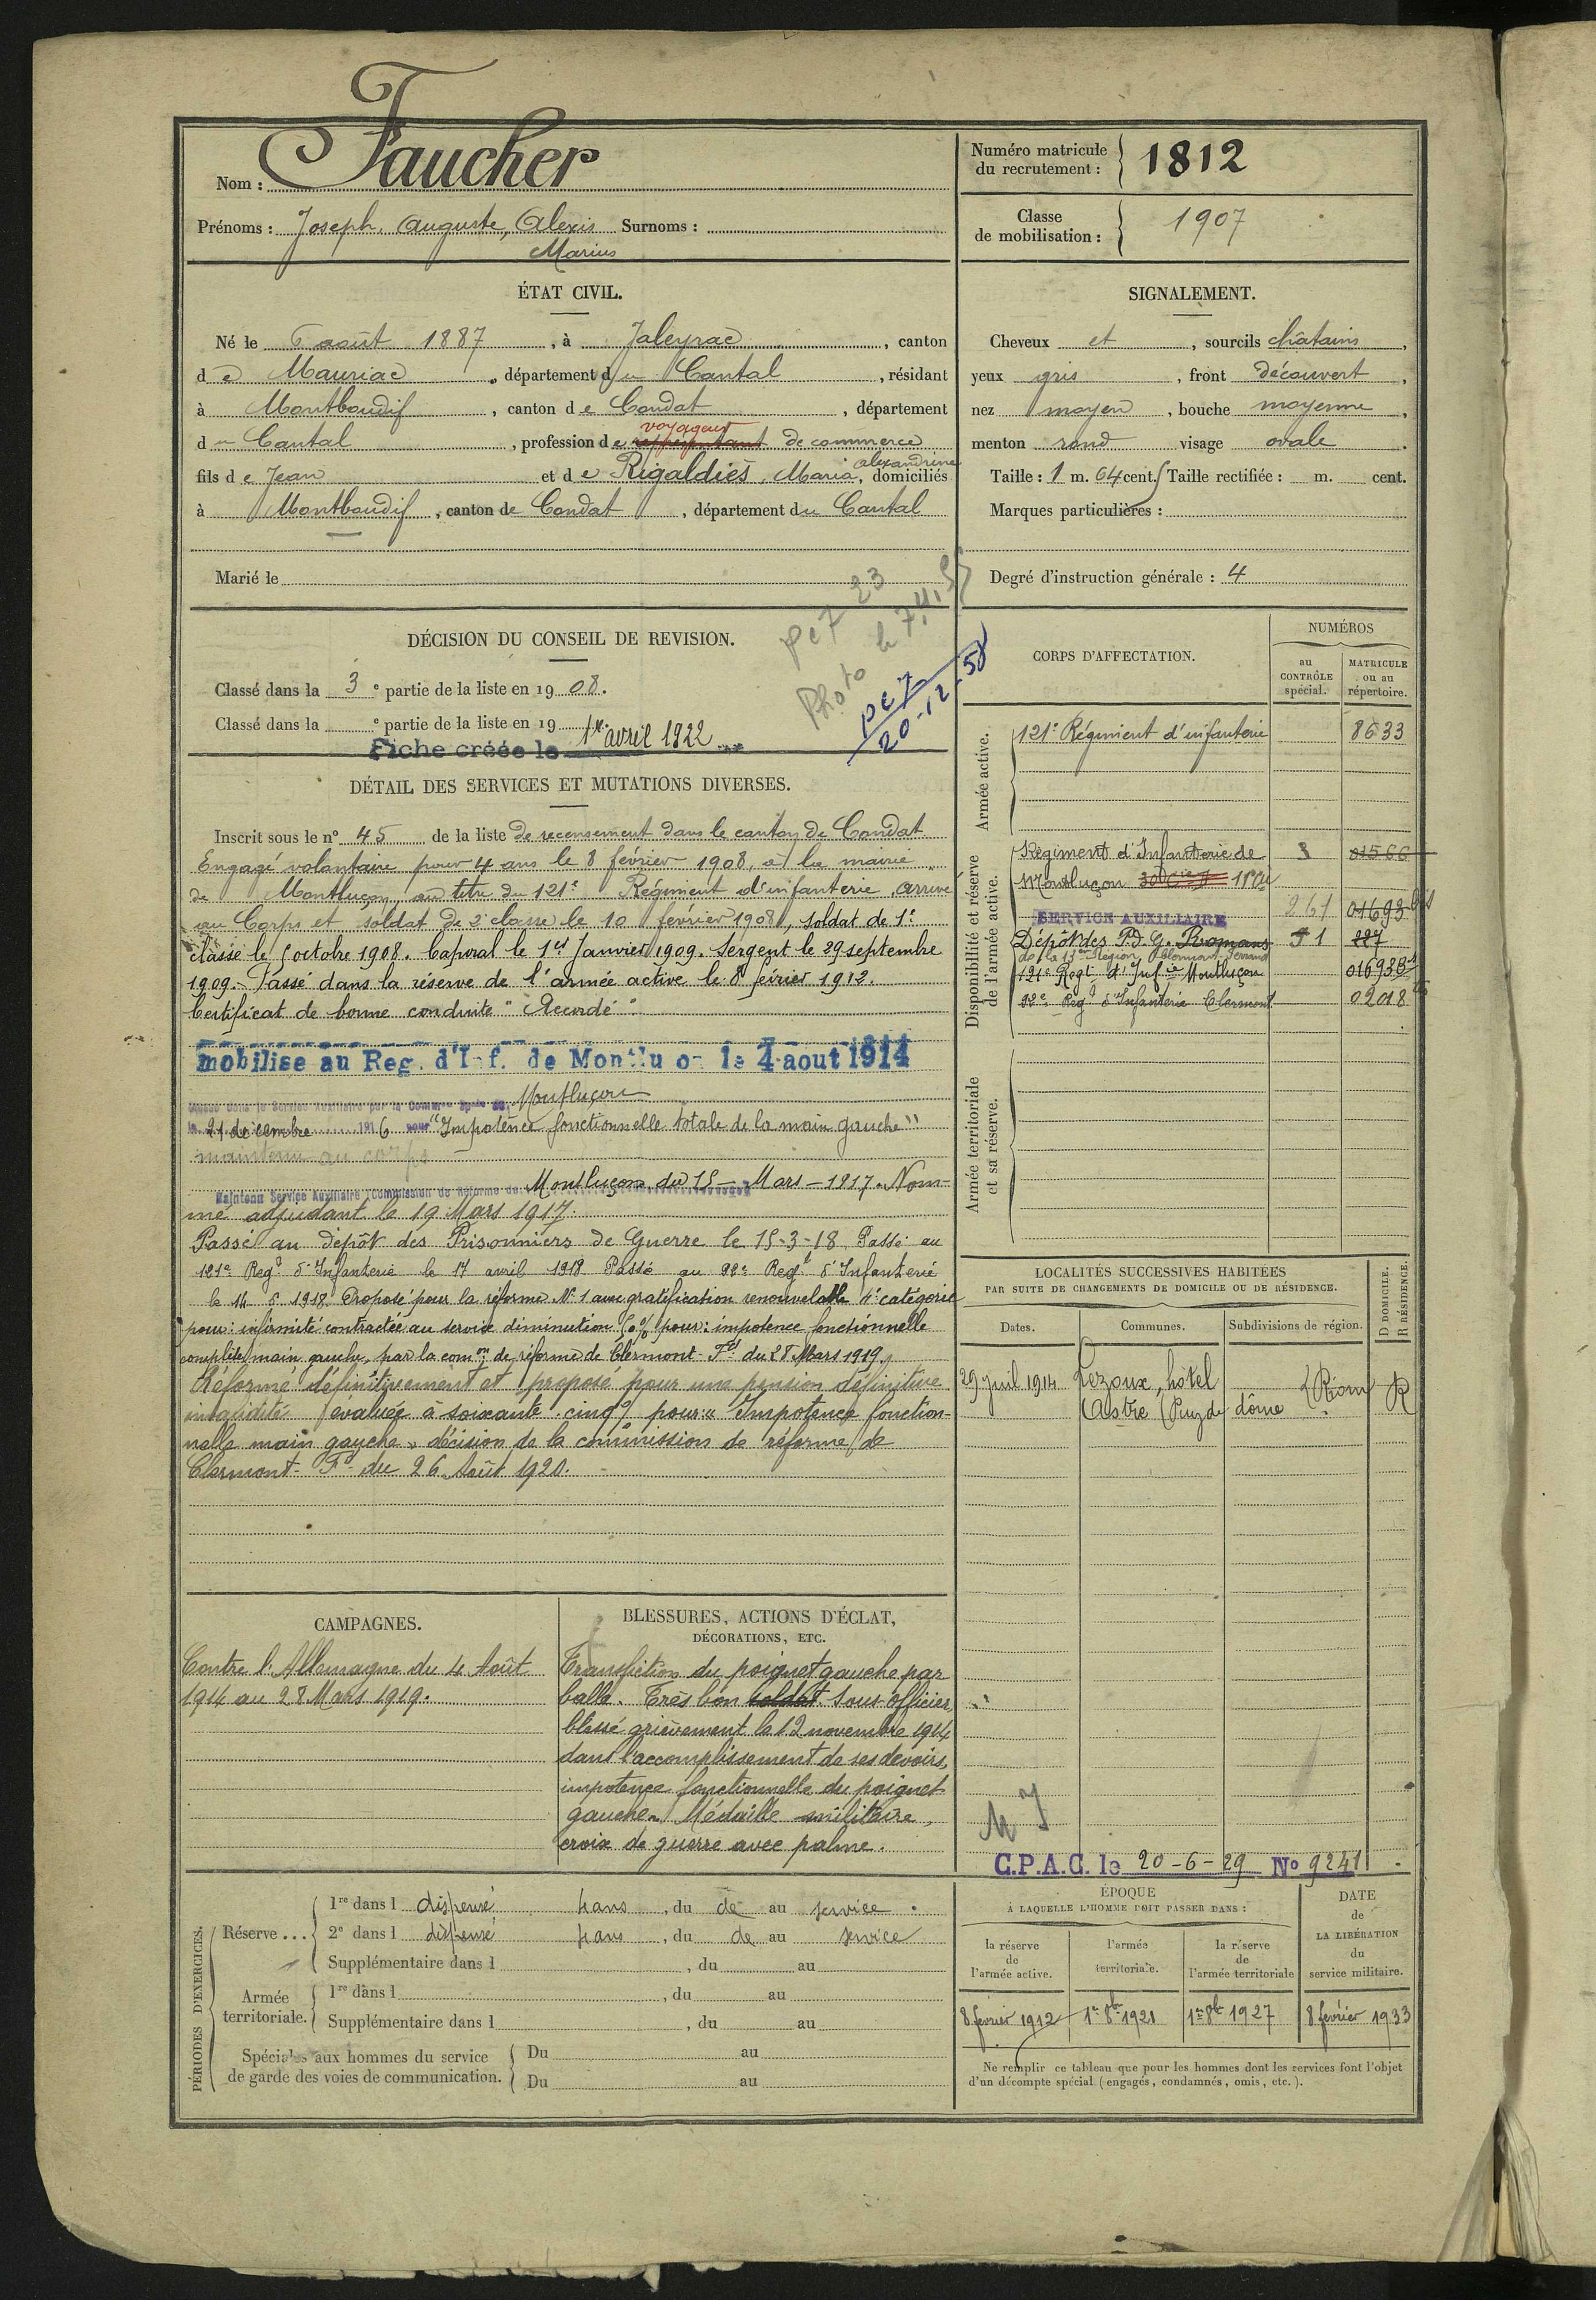 Nom : Faucher
Prénoms : Joseph, Auguste, Alexis Surnoms :
Marius
Numéro matricule
du recrutement : 1812
Classe
de mobilisation : 1907
ÉTAT CIVIL.
Né le 6 août 1887, à Jaleyrac, canton
de Mauriac, département du Cantal, résidant
à Montboudif, canton de Condat, département
voyageur
du Cantal, profession de représentant de commerce
Alexandrine
fils de Jean et de Rigaldiès, Maria, domiciliés
à Montboudif, canton de Condat, département du Cantal
Marié le
SIGNALEMENT.
Cheveux et, sourcils châtains,
yeux gris, front découvert,
nez moyen, bouche moyenne,
menton rond visage ovale.
Taille : 1 m. 64 cent. Taille rectifiée : m. cent.
Marques particulières :
Degré d'instruction générale : 4
DÉCISION DU CONSEIL DE REVISION.
Classé dans la 3e partie de la liste en 1908.
Classé dans la e partie de la liste en 19
Fiche créée le 1er avril 1922
Photo
20-12-58
DÉTAIL DES SERVICES ET MUTATIONS DIVERSES.
Inscrit sous le no 45 de la liste de recensement dans le canton de Condat
Engagé volontaire pour 4 ans le 8 février 1908, à la mairie
de Montluçon, au titre du 121e Régiment d'infanterie, arrivé
au Corps et soldat de 2e classe le 10 février 1908, soldat de 1e
classe le 5 octobre 1908. Caporal le 1er Janvier 1909. Sergent le 29 septembre
1909. Passé dans la réserve de l'armée active le 8 février 1912.
Certificat de bonne conduite "Accordé".
mobilise au Reg. d'Inf. de Montlu on le 4 aout 1914
Classé dans le Service Auxiliaire par la Comm Montluçon
le 21 décembre 1916 pour "Impotence fonctionnelle totale de la main gauche"
maintenu au corps
Maintenu Service Auxiliaire Commission de Réforme de Montluçon du 15 - Mars - 1917. Nom-
mé adjudant le 19 Mars 1917.
Passé au dépôt des Prisonniers de Guerre le 15-3-18. Passé au
121e Regt d'Infanterie le 17 avril 1918 Passé au 92e Regt d'Infanterie
le 14 5 1918. Proposé pour la réforme No 1 avec gratification renouvelable 4e catégorie
pour : infirmité contractée au service diminution 60% pour : impotence fonctionnelle
complète main gauche, par la comon de réforme de Clermont-Fd du 28 Mars 1919.
Réformé définitivement et proposé pour une pension définitive
invalidité évaluée à soixante cinq % pour : "Impotence fonction-
nelle main gauche", décision de la commission de réforme de
Clermont-Fd du 26 Août 1920.
CORPS D'AFFECTATION.
NUMÉROS
au
CONTRÔLE
spécial.
MATRICULE
ou au
répertoire.
Armée active.
121e Régiment d'infanterie 8633
Disponibilité et réserve
de l'armée active.
Régiment d'Infanterie de 8 01566
Montluçon
SERVICE AUXILIAIRE 261 01693
Dépôt des P.d.G. Romans 51 227
de la 13e Région Clermont-Ferrand
121e Regt d'Infie Montluçon 01693
92e Regt d'Infanterie Clermont 0201
Armée territoriale
et sa réserve.
LOCALITÉS SUCCESSIVES HABITÉES
PAR SUITE DE CHANGEMENTS DE DOMICILE OU DE RÉSIDENCE.
Dates. Communes. Subdivisions de région. D DOMICILE. R RÉSIDENCE.
29 juil 1914 Lezoux, hôtel Riom R
Castre (Puy de dôme
CAMPAGNES.
Contre l'Allemagne du 4 Août
1914 au 28 Mars 1919.
BLESSURES, ACTIONS D'ÉCLAT,
DÉCORATIONS, ETC.
Transfiction du poignet gauche par
balle. Très bon soldat sous-officier,
blessé grièvement le 12 novembre 1914
dans l'accomplissement de ses devoirs,
impotence fonctionnelle du poignet
gauche. Médaille militaire,
croix de guerre avec palme.
C.P.A.C. le 20-6-29 No 9241
PÉRIODES D'EXERCICES.
Réserve ... 1re dans l dispensé 4 ans, du de au service.
2e dans l dispensé 4 ans, du de au service
Supplémentaire dans l , du au
Armée
territoriale. 1re dans l , du au
Supplémentaire dans l , du au
Spéciales aux hommes du service
de garde des voies de communication.
Du au
Du au
ÉPOQUE
À LAQUELLE L'HOMME DOIT PASSER DANS :
la réserve
de
l'armée active.
l'armée
territoriale.
la réserve
de
l'armée territoriale
DATE
de
LA LIBÉRATION
du
service militaire.
8 février 1912 1er 8bre 1921 1er 8bre 1927 8 février 1933
Ne remplir ce tableau que pour les hommes dont les services font l'objet
d'un décompte spécial (engagés, condamnés, omis, etc.).